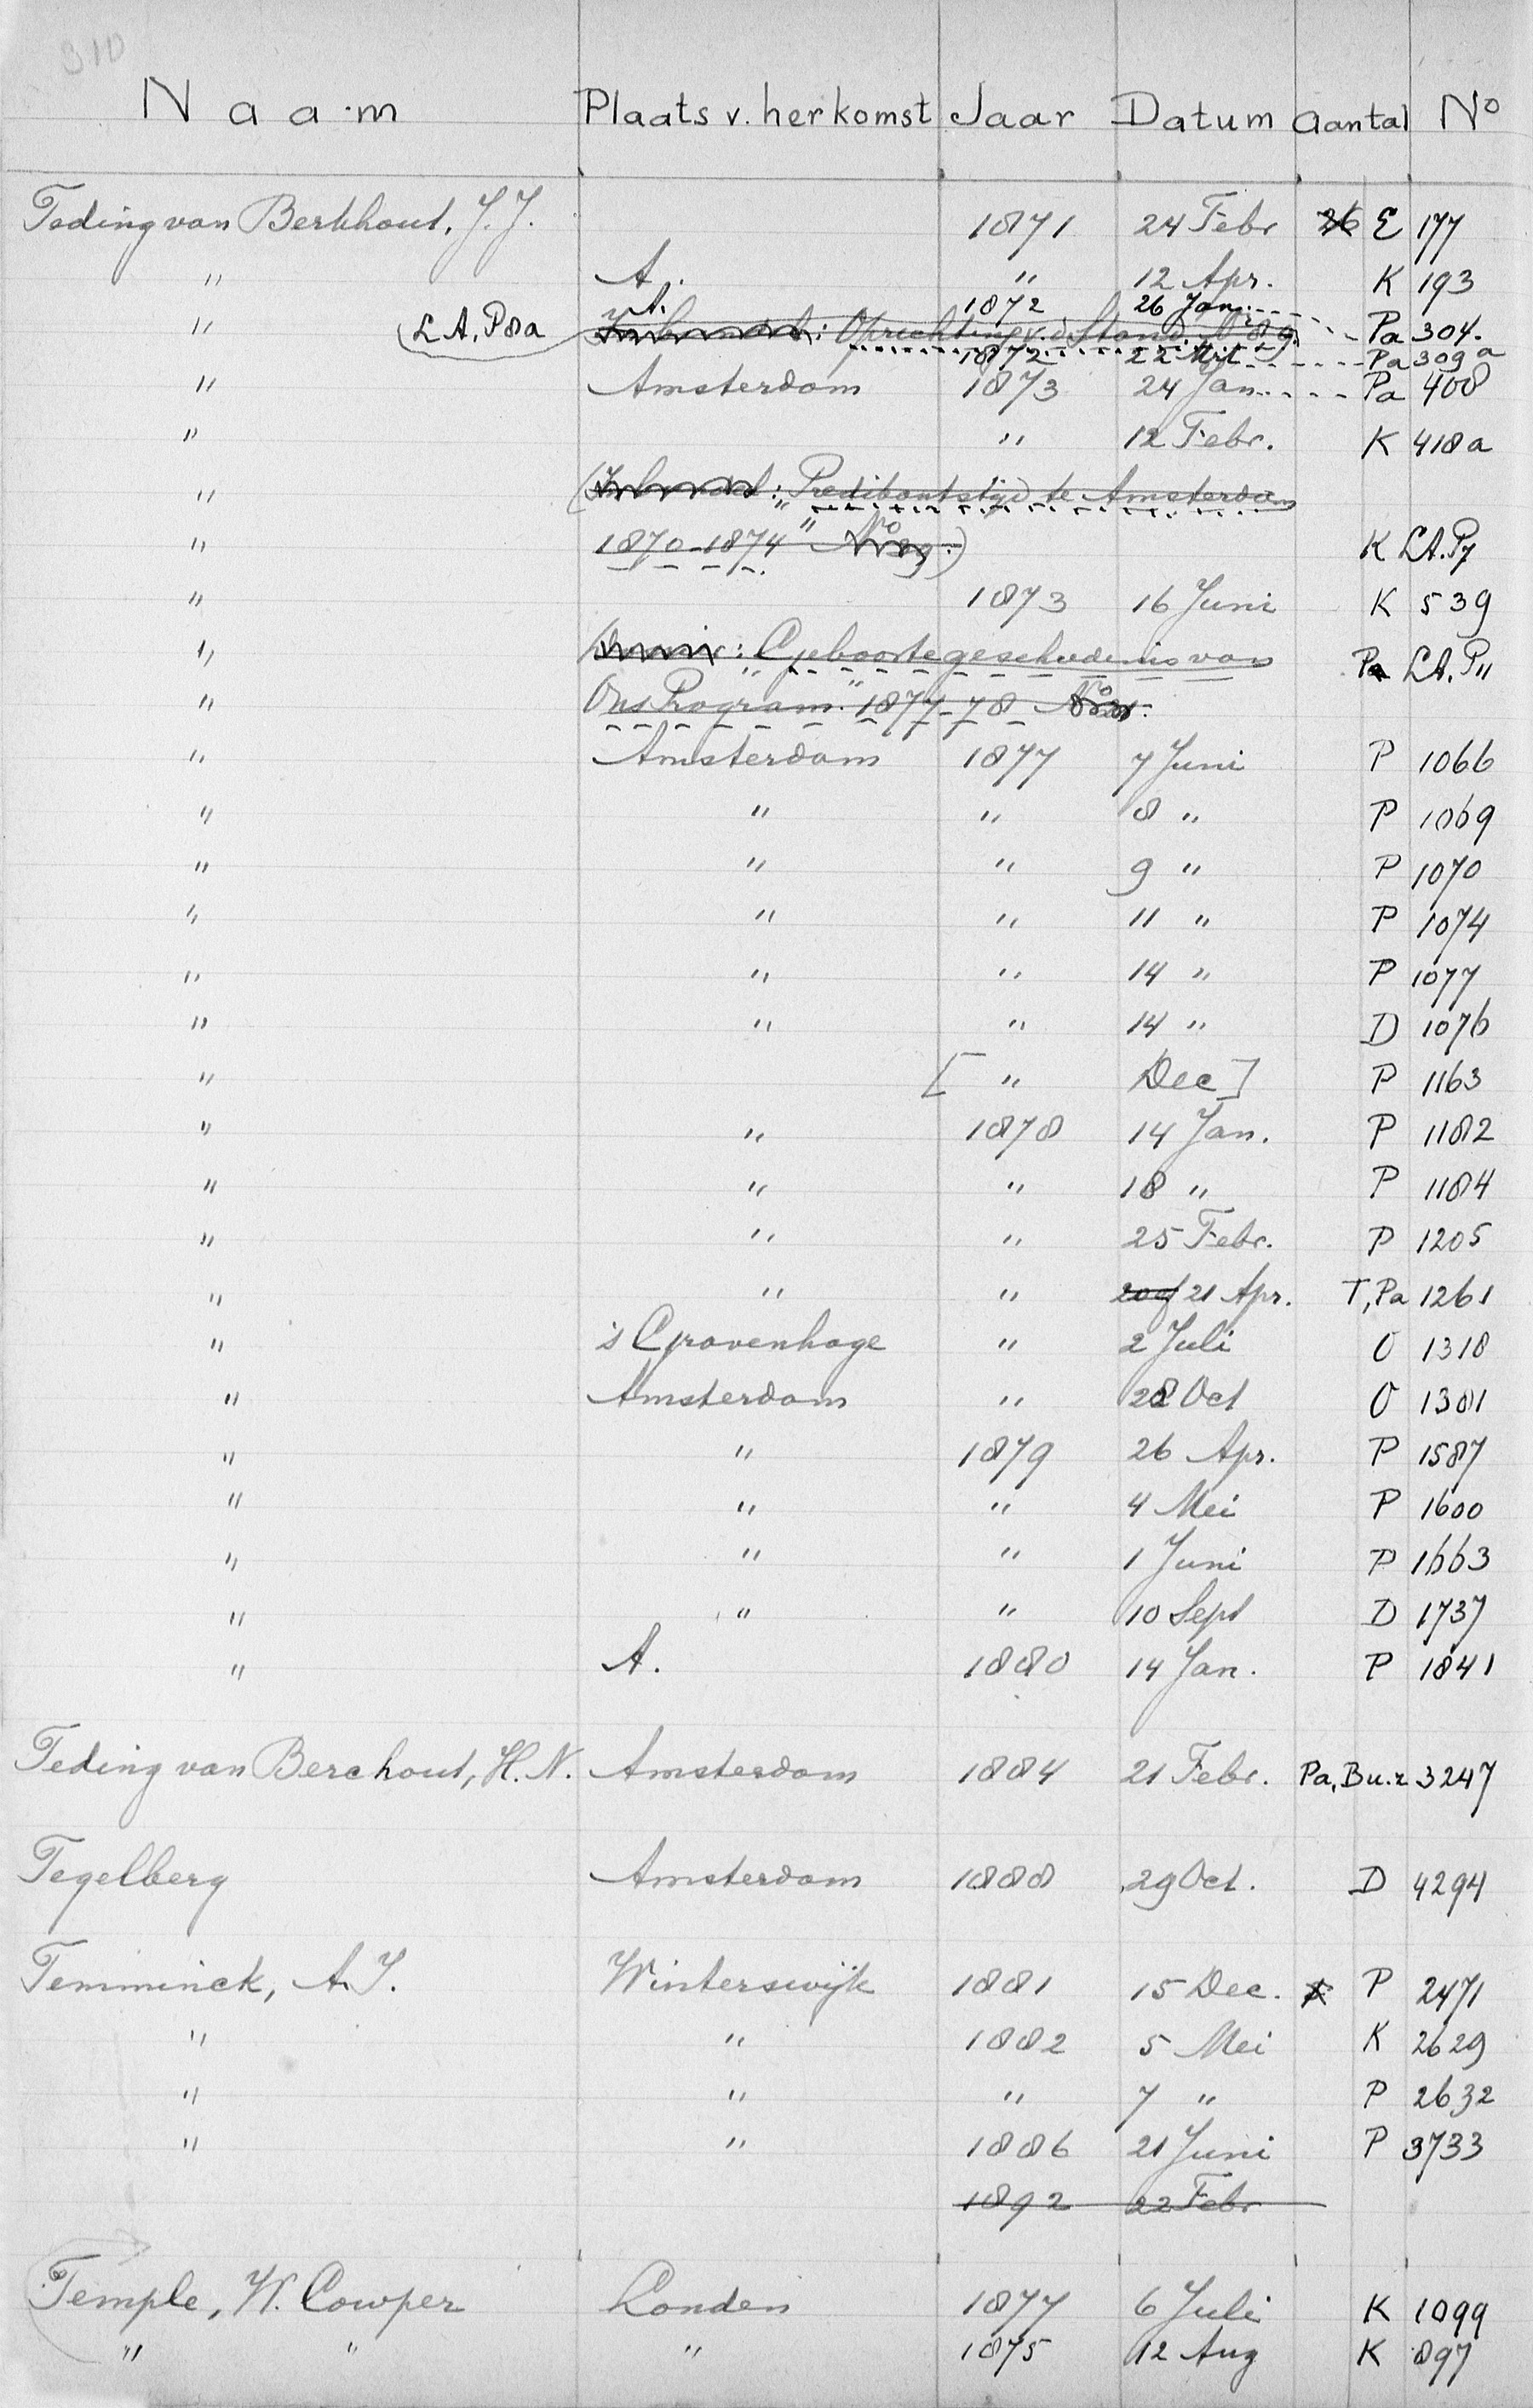 310
Naam Plaats v. herkomst Jaar Datum aantal No
Teding van Berkhout, J.J. 1871 24 Febr 26 E 177
" A. " 12 Apr. K 193
A. 1872 26 Jan.
" (L.A. P8a : Oprichting v. d. Stand. No 89) Pa 304.
1872 22 Mrt Pa 309a
" Amsterdam 1873 24 Jan. Pa 408
" " 12 Febr. K 418a
" : "Predikantstijd te Amsterdam
" 1870-1874" No 89.) K L.A. P7
" 1873 16 Juni K 539
" : "Geboortegeschiedenis van Pa L.A. P11
" Ons Program." 1877-78 No
" Amsterdam 1877 7 Juni P 1066
" " " 8 " P 1069
" " " 9 " P 1070
" " " 11 " P 1074
" " " 14 " P 1077
" " " 14 " D 1076
" [ " Dec ] P 1163
" " 1878 14 Jan. P 1182
" " " 18 " P 1184
" " " 25 Febr. P 1205
" " " 20 of 21 Apr. T, Pa 1261
" 's Gravenhage " 2 Juli O 1318
" Amsterdam " 28 Oct O 1381
" " 1879 26 Apr. P 1587
" " " 4 Mei P 1600
" " " 1 Juni P 1663
" " " 10 Sept D 1737
" A. 1880 14 Jan. P 1841
Teding van Berchout, H.N. Amsterdam 1884 21 Febr. Pa, Bu.z 3247
Tegelberg Amsterdam 1888 29 Oct. D 4294
Temminck, A.J. Winterswijk 1881 15 Dec. P 2471
" " 1882 5 Mei K 2629
" " " 7 " P 2632
" " 1886 21 Juni P 3733
1892 22 Febr
Temple, W. Cowper Londen 1877 6 Juli K 1099
" " " 1875 12 Aug K 897